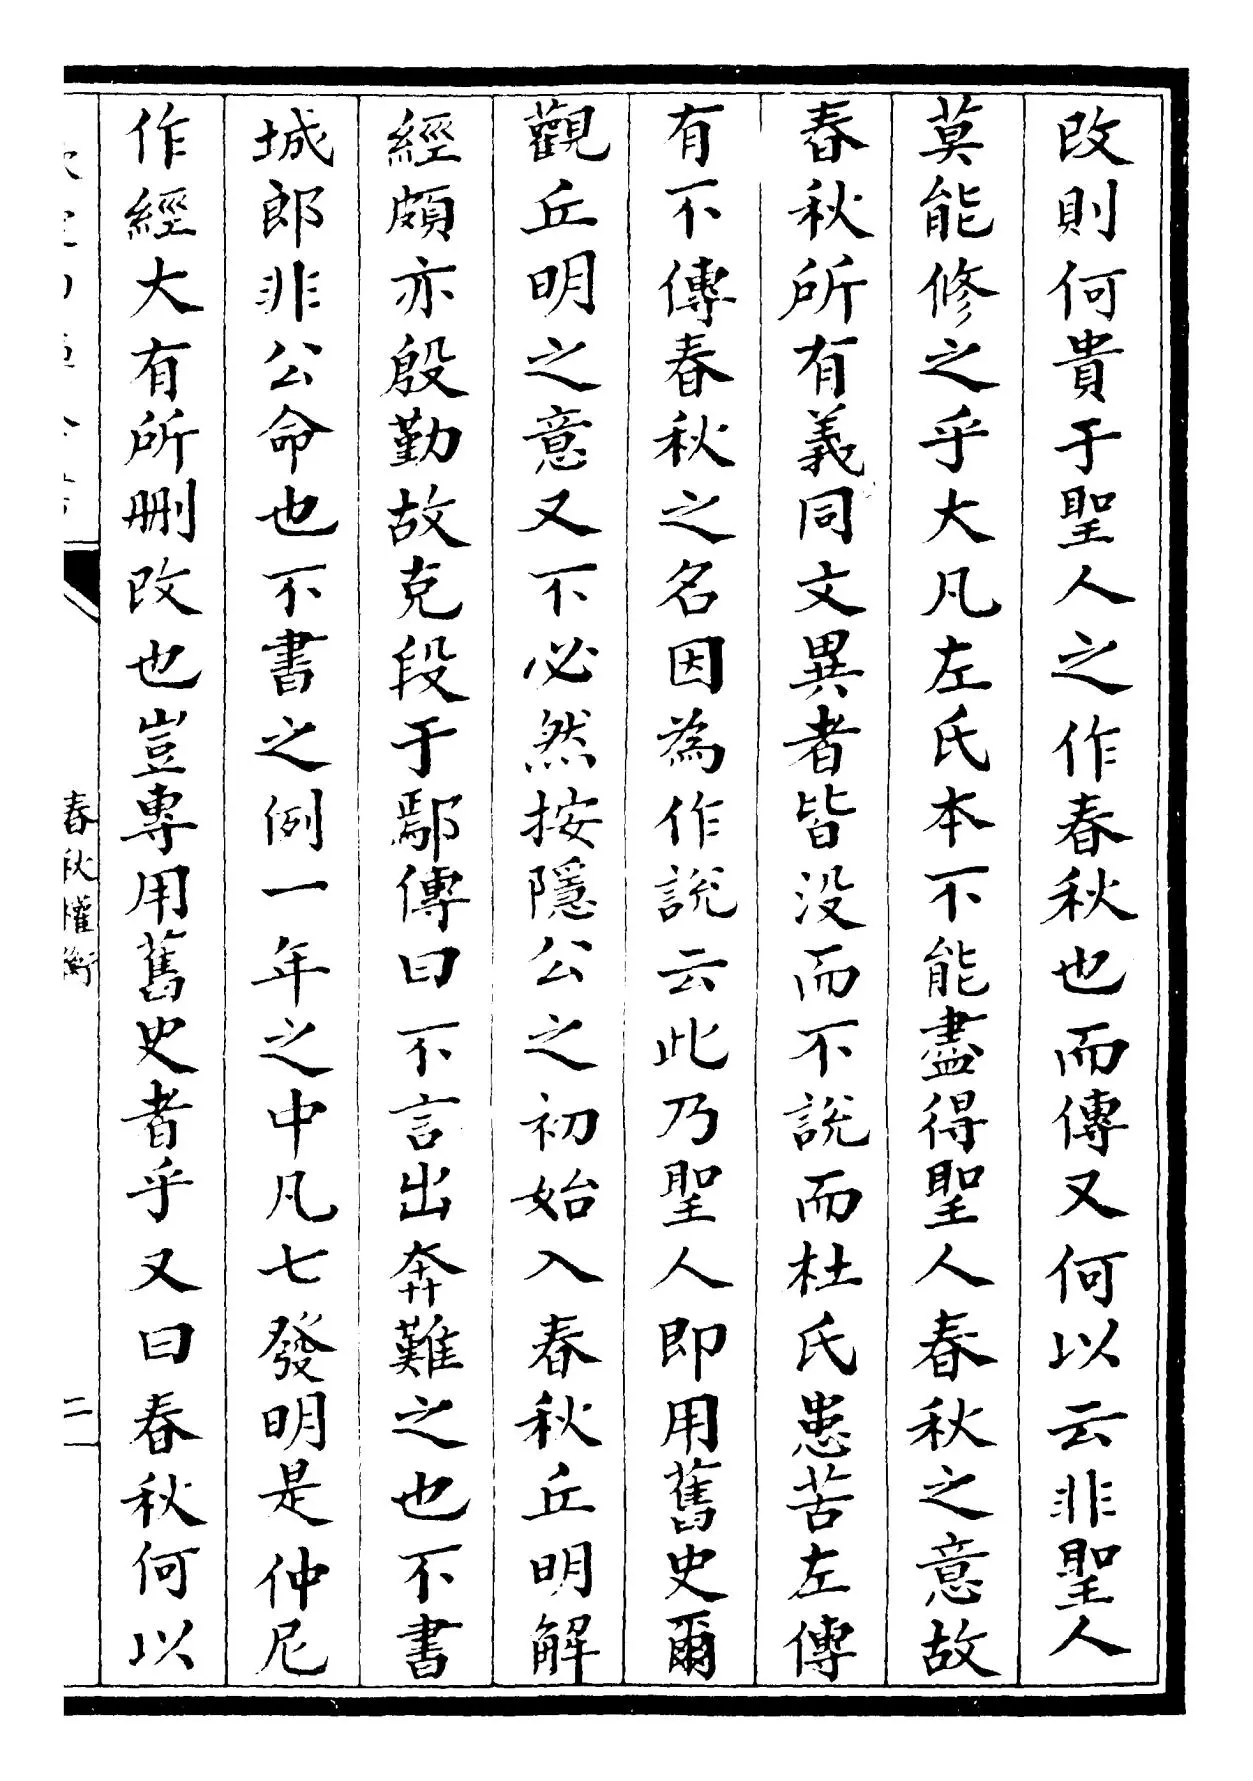 改則何貴于聖人之作春秋也而傳又何以云非聖人
莫能修之乎大凡左氏本不能盡得聖人春秋之意故
春秋所有義同文異者皆没而不說而杜氏患苦左傳
有不傳春秋之名因為作說云此乃聖人即用舊史爾
觀丘明之意又不必然按隱公之初始入春秋丘明解
經頗亦殷勤故克段于鄢傳曰不言出奔難之也不書
城郎非公命也不書之例一年之中凡七發明是仲尼
作經大有所刪改也豈專用舊史者乎又曰春秋何以
春秋權衡
二